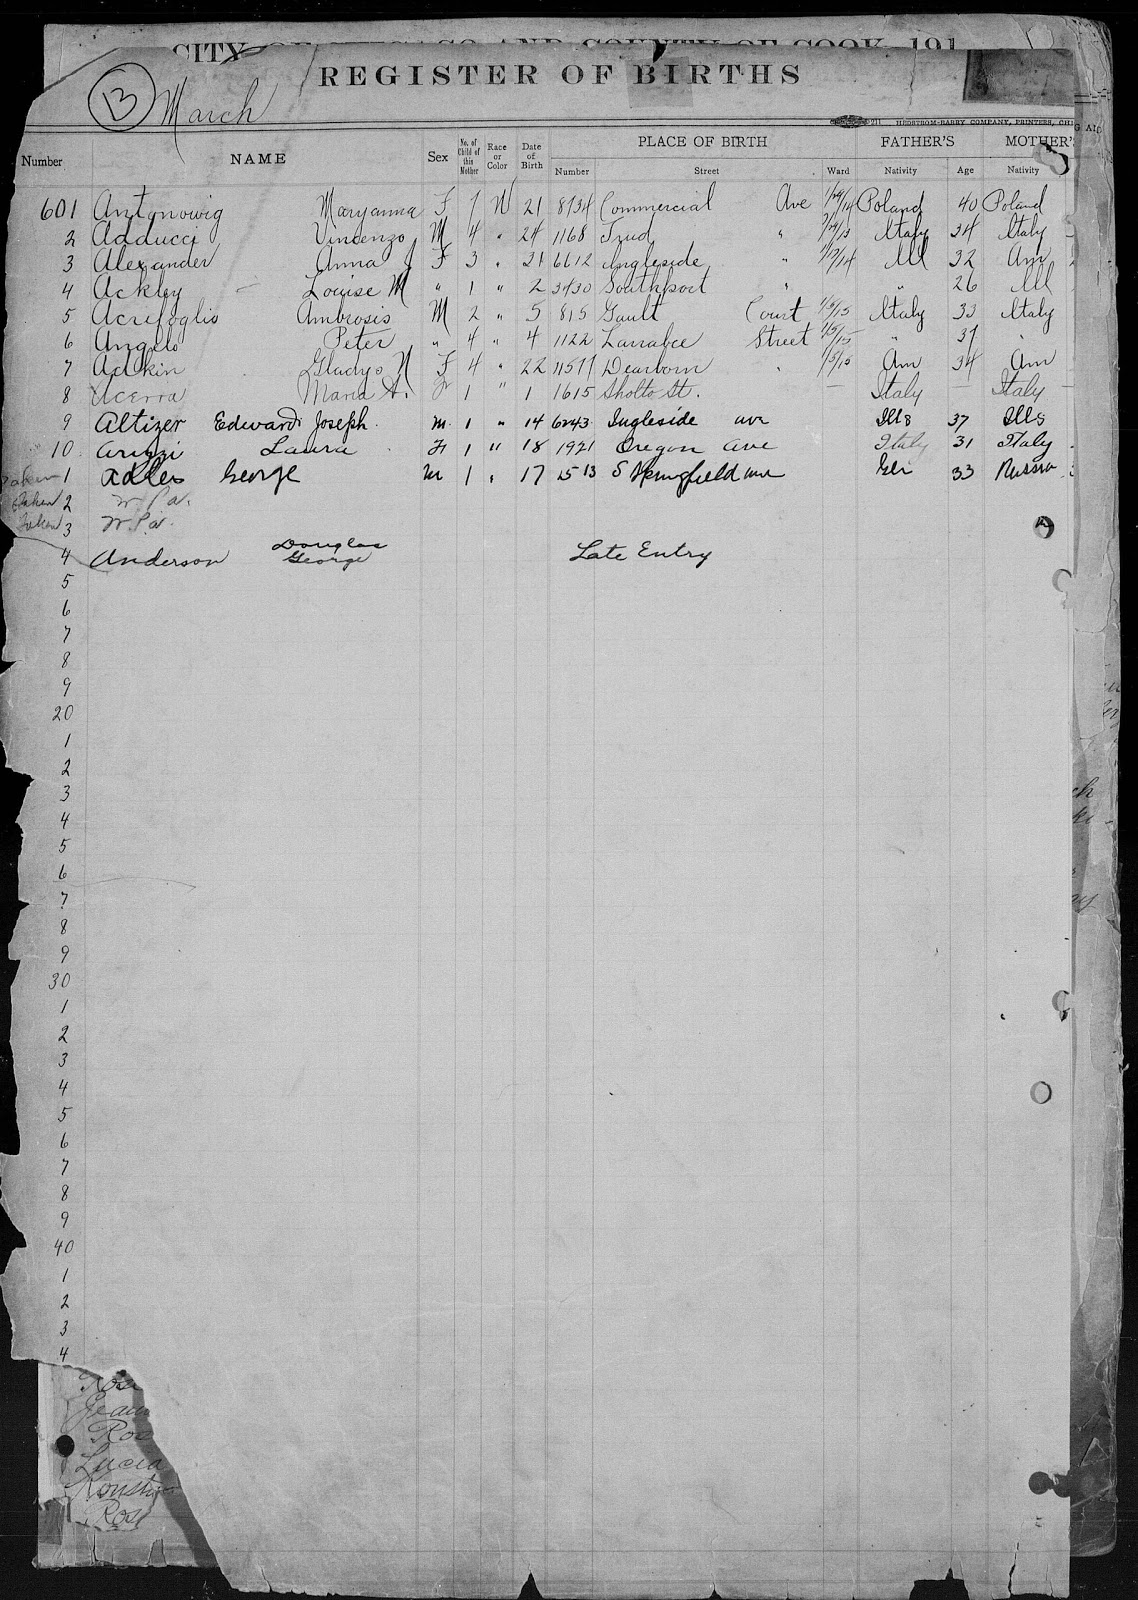 CITY OF CHICAGO AND COUNTY OF COOK, 191
REGISTER OF BIRTHS
B March
211 HEDSTROM-BARRY COMPANY, PRINTERS, CHI
PLACE OF BIRTH FATHER'S MOTHER'S
Number NAME Sex No. of Child of this Mother Race or Color Date of Birth Number Street Ward Nativity Age Nativity
601 Antonowig Maryanna F 7 W 21 8734 Commercial Ave 1/29/14 Poland 40 Poland
2 Adducci Vincenzo M 4 " 24 1168 " Italy 34 Italy
3 Alexander Anna J F 3 " 21 6612 Ingleside " Ill 32 Am
4 Ackley Louise M " 1 " 2 3430 Southport " 26 Ill
5 Acrifoglis Ambrosis M 2 " 5 815 Gault Court 1/5/15 Italy 33 Italy
6 Angelo Peter " 4 " 4 1122 Larrabee Street 1/5/15 " 37 "
7 Adkin Gladys N F 4 " 22 11577 Dearborn " 1/5/15 Am 34 Am
8 Acerra Maria A. F 1 " 1 1615 Sholto St. — Italy — Italy —
9 Altizer Edward Joseph. M. 1 " 14 6243 Ingleside ave Ills 37 Ills
10 Arizzi Laura F 1 " 18 1921 Oregon ave Italy 31 Italy
1 Adler George M 1 " 17 1513 S Springfield ave Ger 33 Russia
Taken 2 W.Pa.
Taken 3 W.Pa.
4 Anderson Douglas George Late Entry
5
6
7
8
9
20
1
2
3
4
5
6
7
8
9
30
1
2
3
4
5
6
7
8
9
40
1
2
3
4
Rose
Lucia
Ros